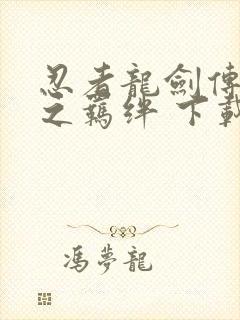 忍者龍劍傳
之羈絆 下載
馮夢龍